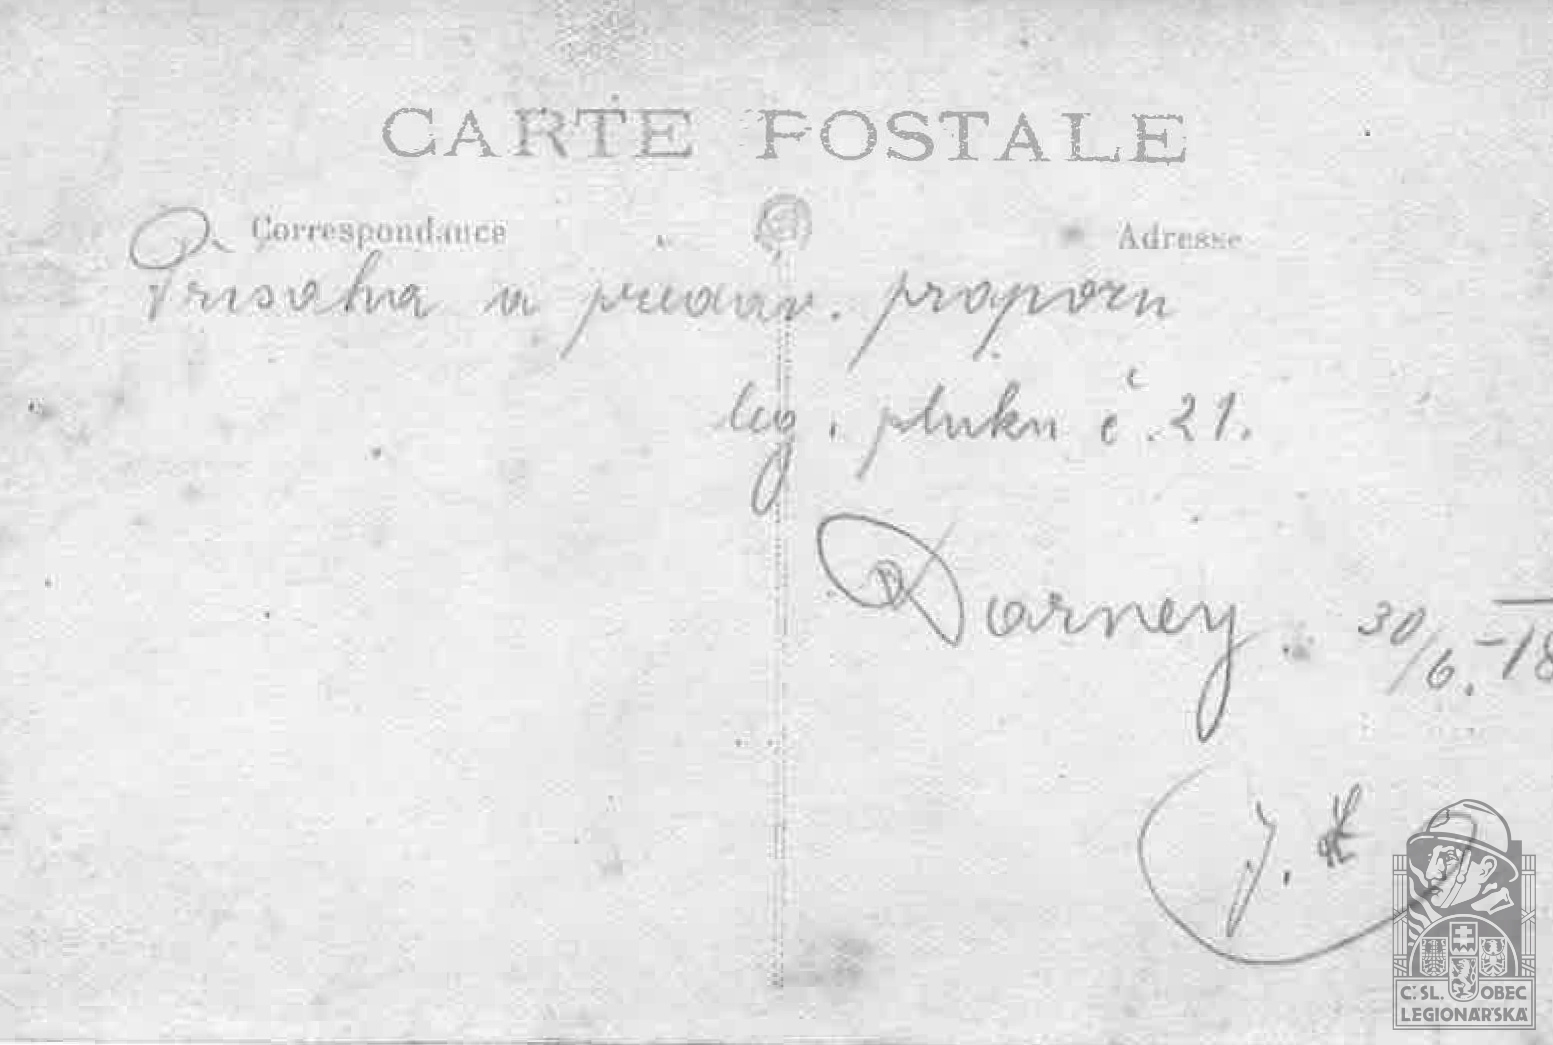 CARTE POSTALE
Correspondance
Adresse
Prisaha a predav. praporu
leg. pluku č. 21.
Darney. 30/6. -18
J. K
Č. SL. OBEC
LEGIONÁŘSKÁ